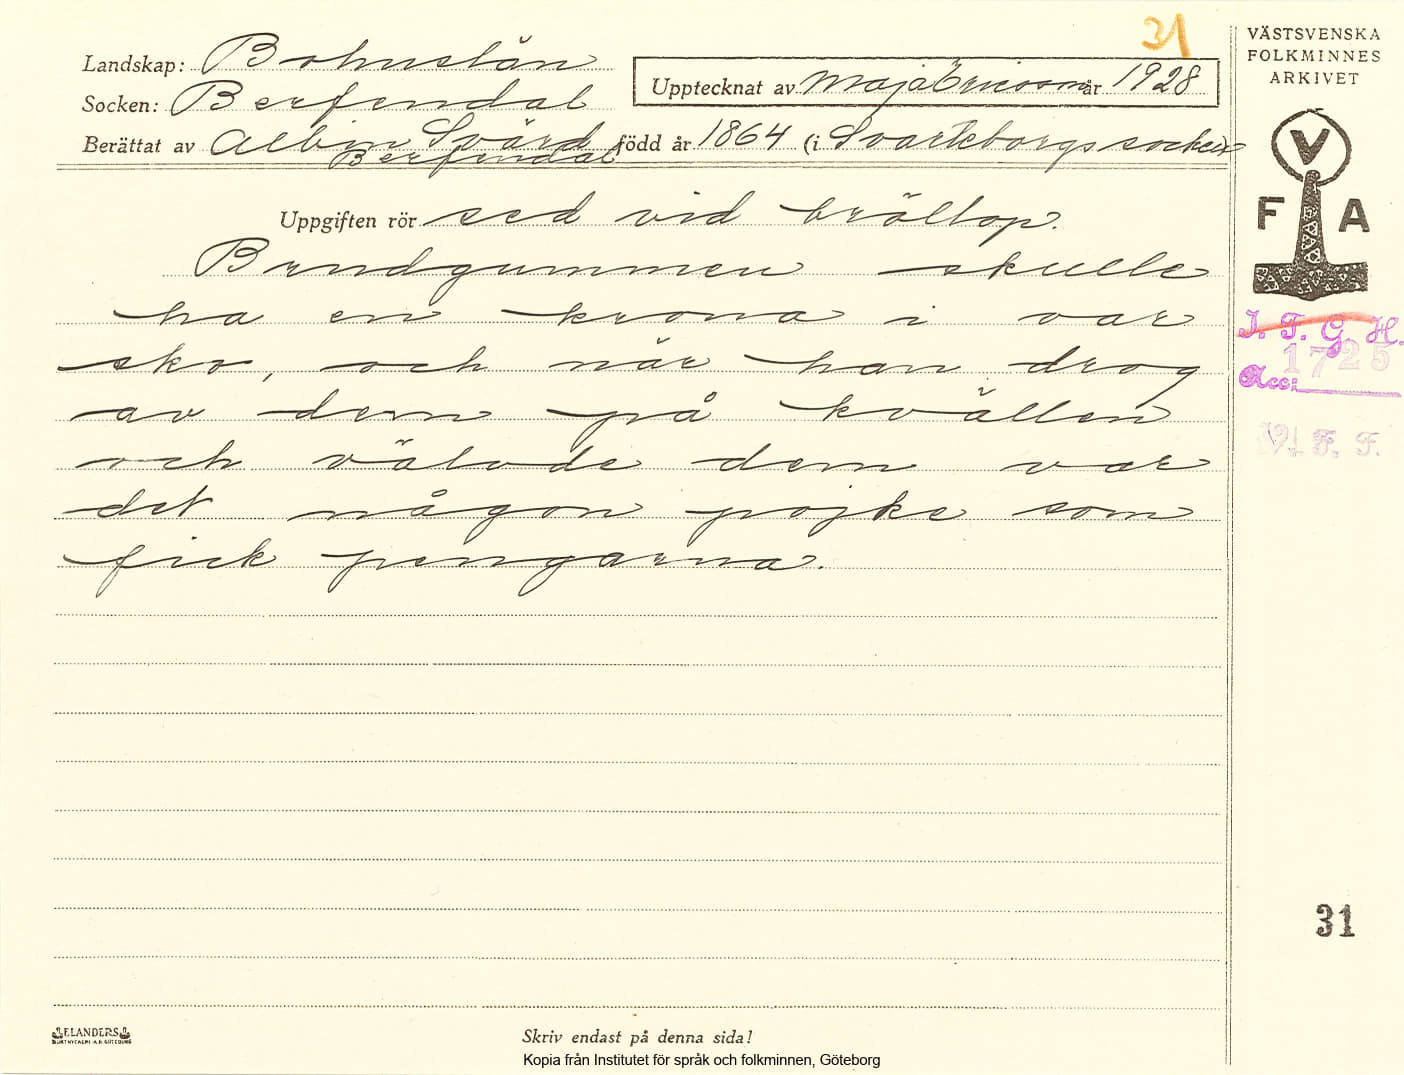 31
VÄSTSVENSKA
FOLKMINNES
ARKIVET
Landskap: Bohuslän
Socken: Berfendal
Upptecknat av Maja Ericson år 1928
Berättat av Albin Svärd född år 1864 (i Svarteborgs socken
Berfendal
V
F A
Uppgiften rör sed vid bröllop.
Brudgummen skulle
ha en krona i var
sko, och när han drog
av dem på kvällen
och välvde dem var
det någon pojke som
fick pengarna.
I. F. G. H.
1725
Acc:
V. F. F.
31
ELANDERS
Skriv endast på denna sida!
Kopia från Institutet för språk och folkminnen, Göteborg